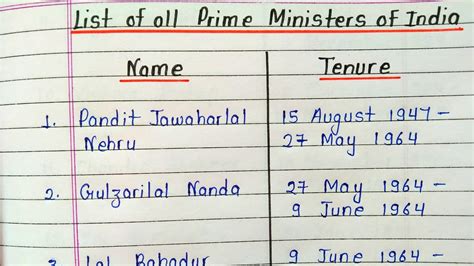 List of all Prime Ministers of India
Name Tenure
1. Pandit Jawaharlal 15 August 1947 -
Nehru 27 May 1964
2. Gulzarilal Nanda 27 May 1964 -
9 June 1964
3. Lal Bahadur 9 June 1964 -